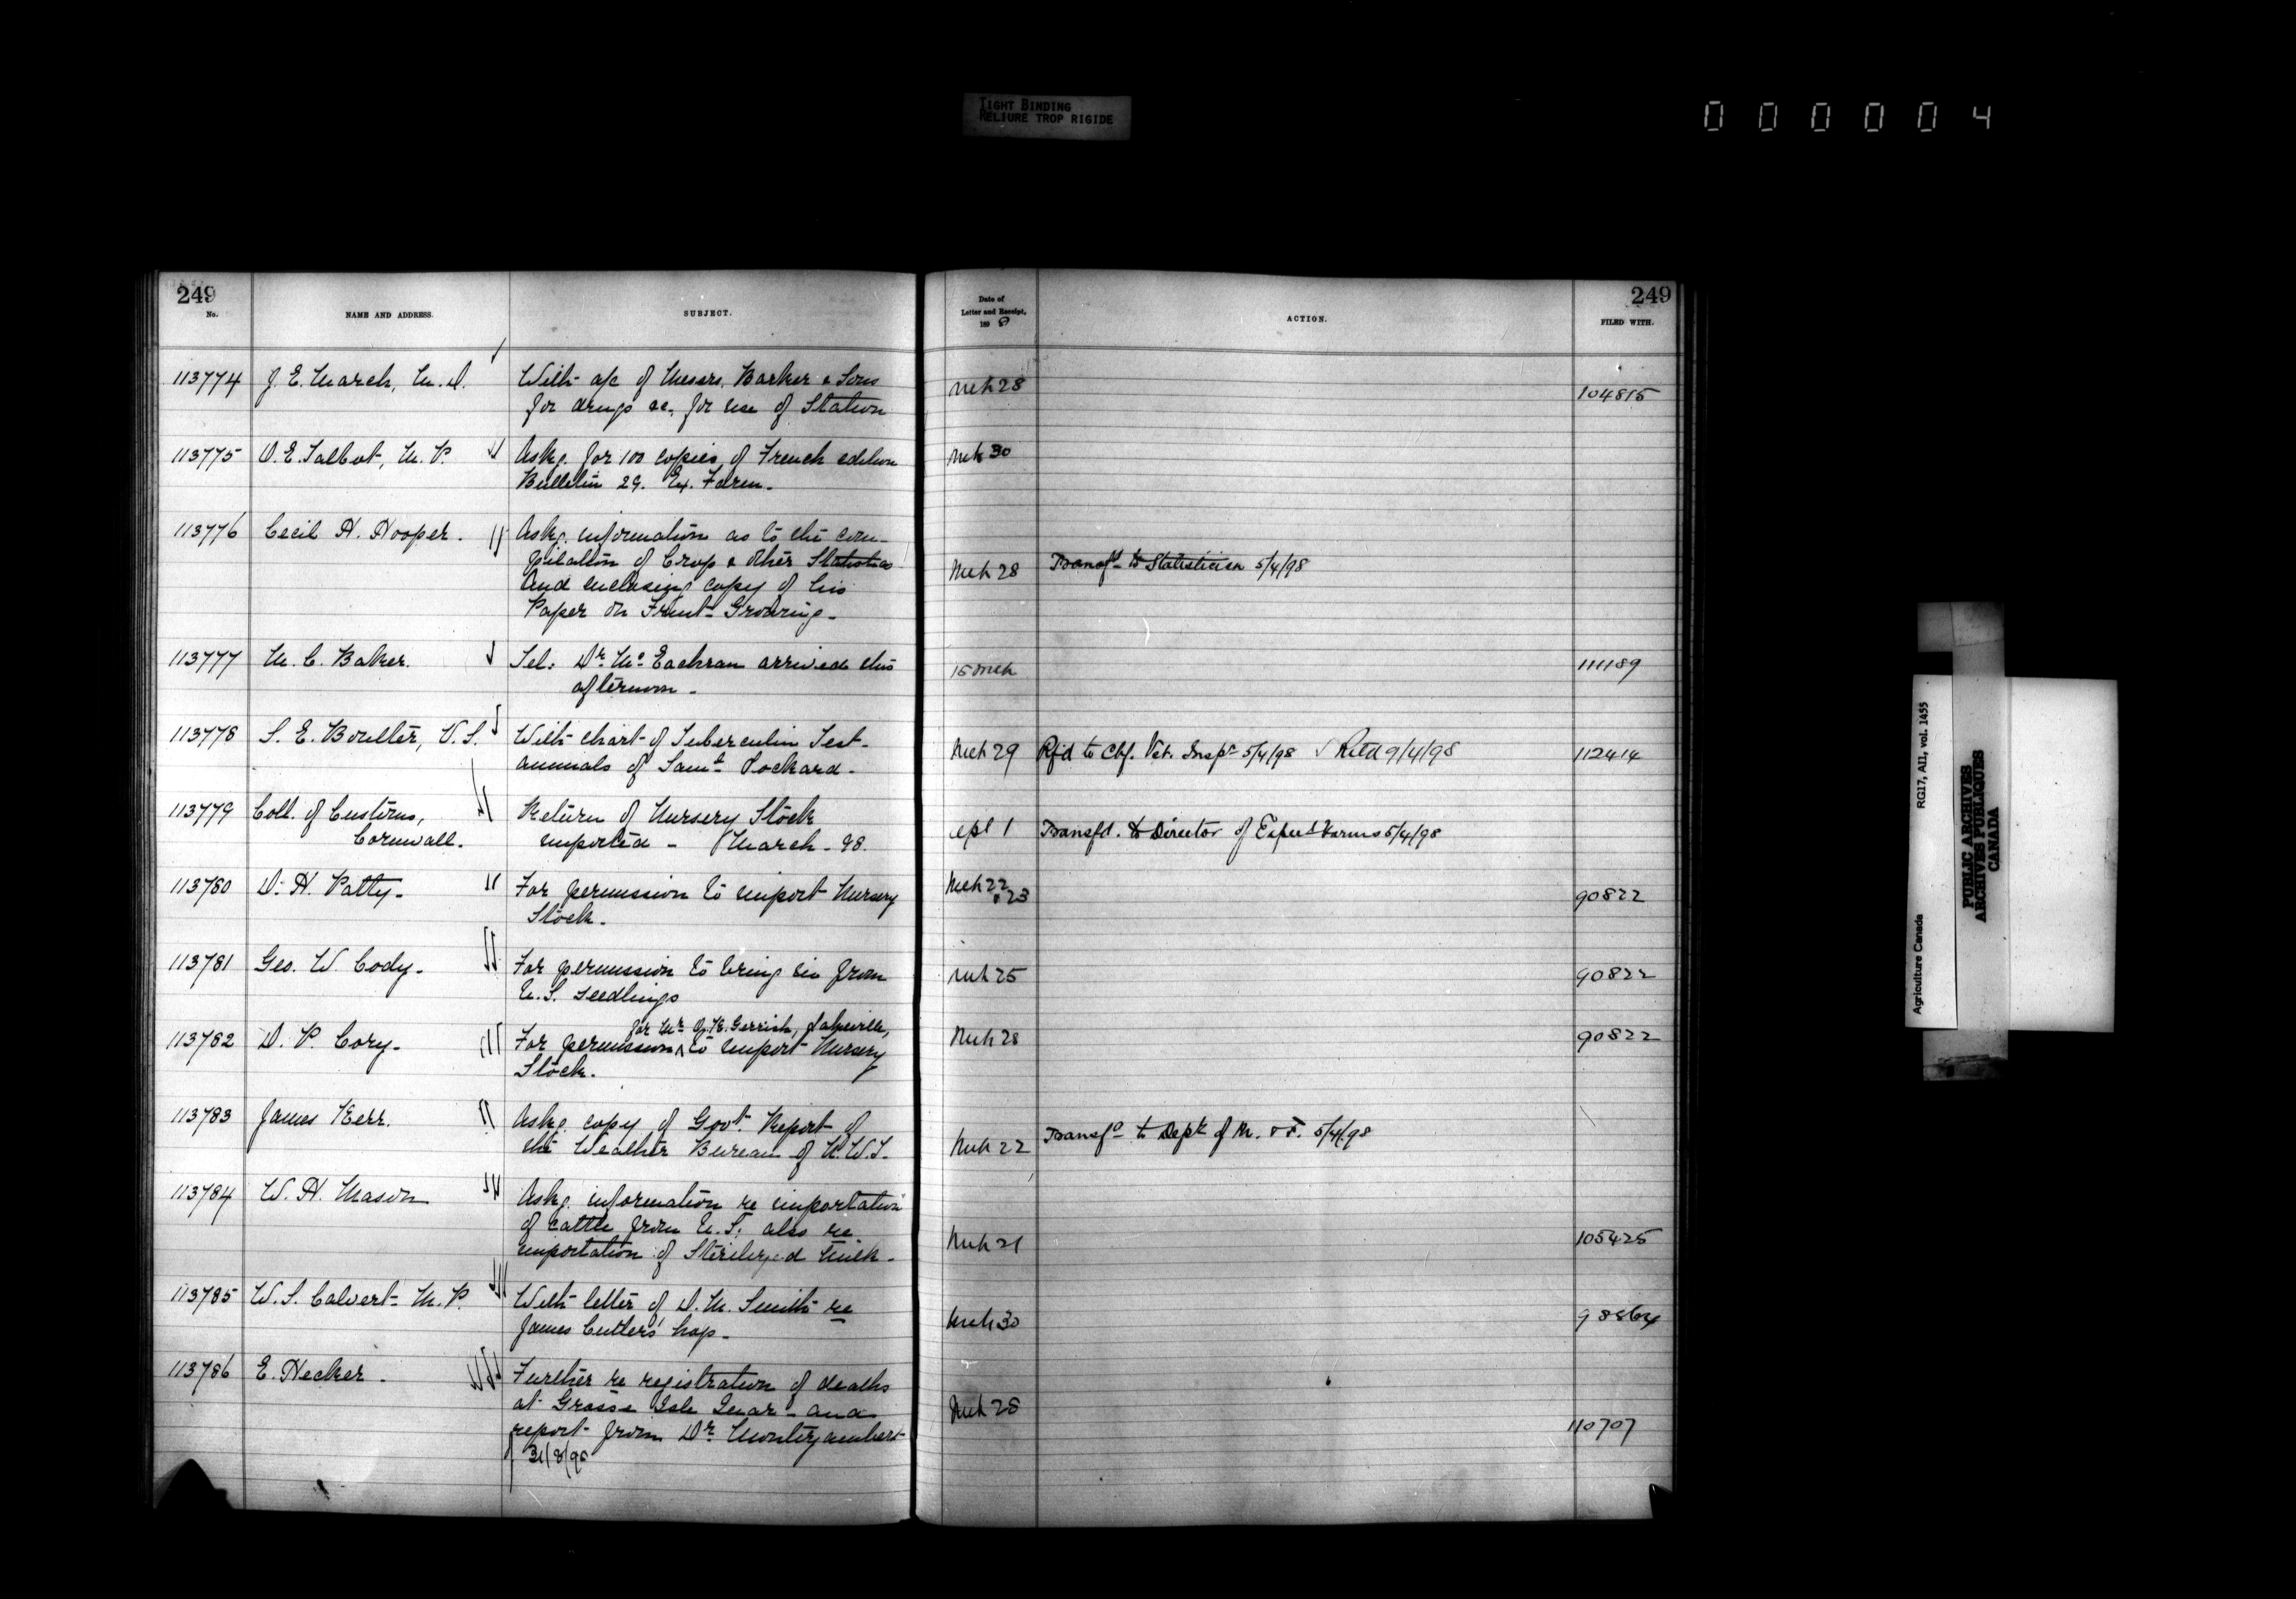 TIGHT BINDING
RELIURE TROP RIGIDE
000004
249
No.
NAME AND ADDRESS.
SUBJECT.
Date of
Letter and Receipt,
1898
ACTION.
249
FILED WITH.
113774 J. E. March, M.D. With a/c of Messrs. Barker & Sons Mch 28 104815
for drugs &c. for use of Station
113775 O. E. Talbot, M.P. Askg. for 100 copies of French edition Mch 30
Bulletin 29. Ex. Farm.
113776 Cecil H. Hooper. Askg. information as to the com-
pilation of Crop & other Statistics Mch 28 Transfd to Statistician 5/4/98
and enclosing copy of his
Paper on Fruit Growing.
113777 M. C. Baker. Tel: Dr. McEachran arrived this 15 Mch 111189
afternoon.
113778 S. E. Boulter, V.S. With chart of Tuberculin Test- Mch 29 Rfd to Chf. Vet. Inspr 5/4/98 ✓ Retd 9/4/98 112414
animals of Saml Lockard.
113779 Coll. of Customs, Return of Nursery Stock
Cornwall. imported - March - 98. Apl 1 Transfd. to Director of Expert Farms 5/4/98
113780 D. H. Patty. For permission to import Nursery Mch 22 90822
Stock. " 23
113781 Geo. W. Cody. For permission to bring in from Mch 25 90822
U.S. seedlings
for Mr. Gerrish, Lakeville,
113782 D. P. Cory. For permission to import Nursery Mch 28 90822
Stock.
113783 James Kerr. Askg. copy of Govt. Report of
the Weather Bureau of N.W.T. Mch 22 Transfd to Dept of M. & F. 5/4/98
113784 W. H. Mason Askg. information re importation
of cattle from U.S. also re
importation of Sterilized Milk. Mch 21 105425
113785 W. S. Calvert M.P. With letter of D. M. Smith re Mch 30
James Cutlers' hop.
113786 E. Hecker. Further re registration of deaths
at Grosse Isle Quar - and Mch 28
report from Dr. Montizambert 110707
Agriculture Canada RG17, AII, vol. 1455
PUBLIC ARCHIVES
ARCHIVES PUBLIQUES
CANADA